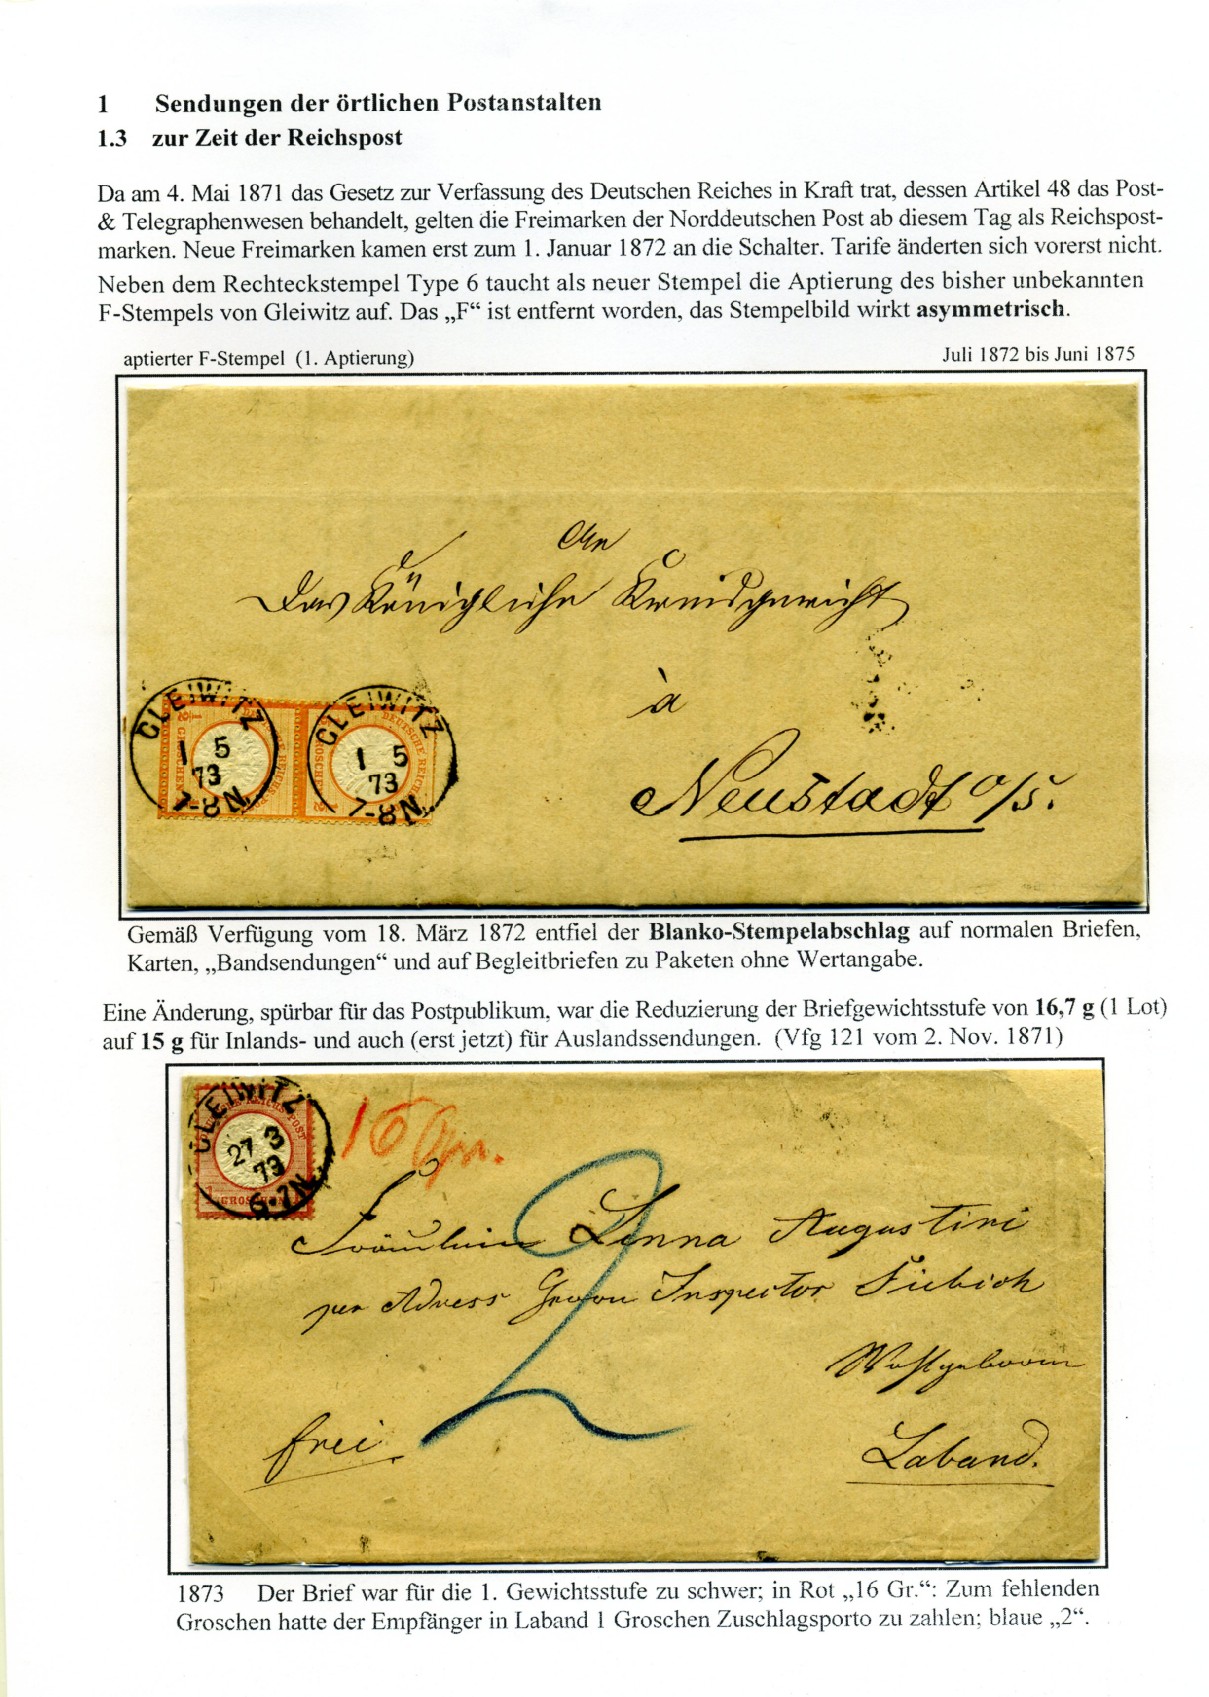 1 Sendungen der örtlichen Postanstalten
1.3 zur Zeit der Reichspost
Da am 4. Mai 1871 das Gesetz zur Verfassung des Deutschen Reiches in Kraft trat, dessen Artikel 48 das Post-
& Telegraphenwesen behandelt, gelten die Freimarken der Norddeutschen Post ab diesem Tag als Reichspost-
marken. Neue Freimarken kamen erst zum 1. Januar 1872 an die Schalter. Tarife änderten sich vorerst nicht.
Neben dem Rechteckstempel Type 6 taucht als neuer Stempel die Aptierung des bisher unbekannten
F-Stempels von Gleiwitz auf. Das „F“ ist entfernt worden, das Stempelbild wirkt asymmetrisch.
aptierter F-Stempel (1. Aptierung) Juli 1872 bis Juni 1875
An
Das Königliche Kreisgericht
à
Neustadt o/s.
GLEIWITZ
1 5
73
7-8N
GLEIWITZ
1 5
73
7-8N
DEUTSCHE REICHS-POST
GROSCHEN
Gemäß Verfügung vom 18. März 1872 entfiel der Blanko-Stempelabschlag auf normalen Briefen,
Karten, „Bandsendungen“ und auf Begleitbriefen zu Paketen ohne Wertangabe.
Eine Änderung, spürbar für das Postpublikum, war die Reduzierung der Briefgewichtsstufe von 16,7 g (1 Lot)
auf 15 g für Inlands- und auch (erst jetzt) für Auslandssendungen. (Vfg 121 vom 2. Nov. 1871)
GLEIWITZ
27 3
73
6-7N
1 GROSCHEN
16 Gr.
2
Fräulein Linna Augustini
per Adress Inspector Fiebich
Laband.
frei.
1873 Der Brief war für die 1. Gewichtsstufe zu schwer; in Rot „16 Gr.“: Zum fehlenden
Groschen hatte der Empfänger in Laband 1 Groschen Zuschlagsporto zu zahlen; blaue „2“.